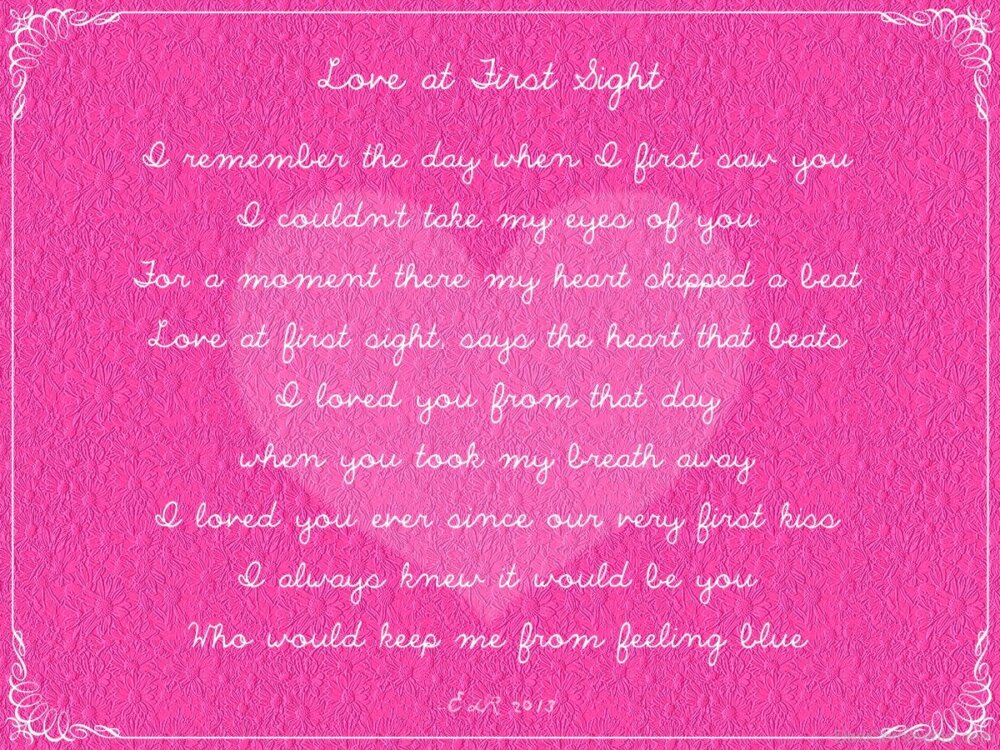 Love at First Sight
I remember the day when I first saw you
I couldn't take my eyes of you
For a moment there my heart skipped a beat
Love at first sight, says the heart that beats
I loved you from that day
when you took my breath away
I loved you ever since our very first kiss
I always knew it would be you
Who would keep me from feeling blue
2013